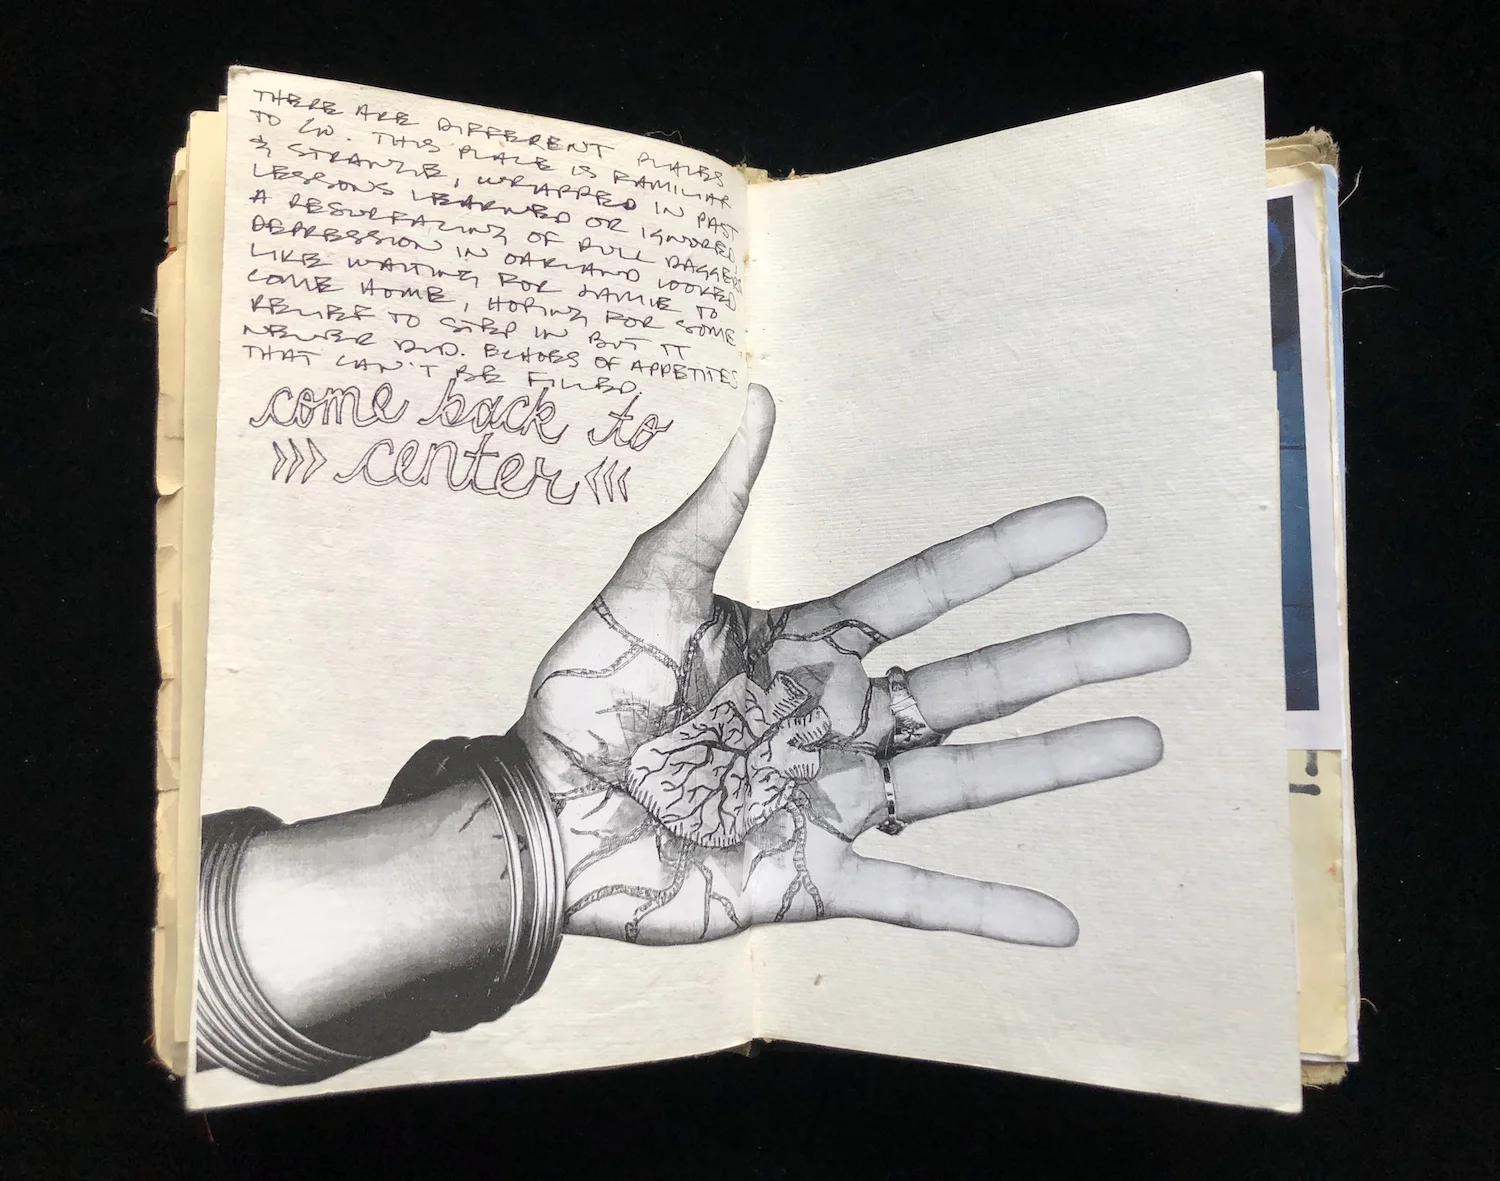 THERE ARE DIFFERENT PLACES
TO GO. THIS PLACE IS FAMILIAR
& STRANGE, WRAPPED IN PAST
LESSONS LEARNED OR IGNORED,
A RESURFACING OF DULL DAGGERS
DEPRESSION IN OAKLAND LOOKED
LIKE WAITING FOR JAMIE TO
COME HOME, HOPING FOR SOME
RELIEF TO STEP IN BUT IT
NEVER DID. ECHOES OF APPETITES
THAT CAN'T BE FILLED.
come back to
>>> center <<<